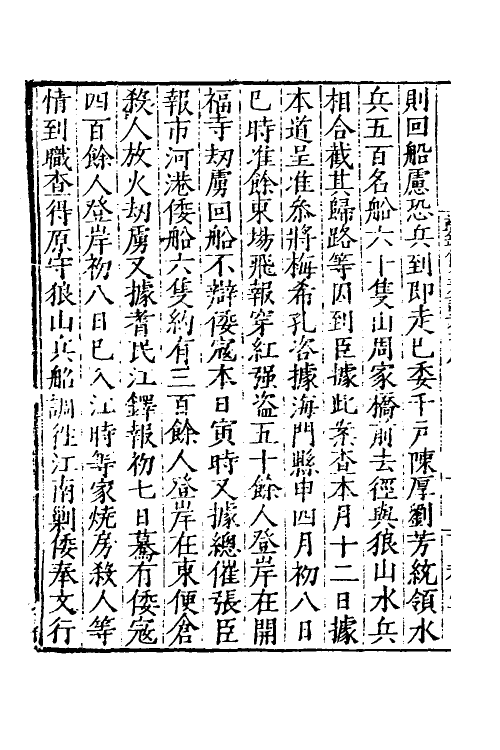 則回船慮恐兵到即走已委千戸陳厚劉芳統領水
兵五百名船六十隻由周家橋前去徑與狼山水兵
相合截其歸路等因到臣據此案查本月十二日據
本道呈准叅將梅希孔咨據海門縣申四月初八日
巳時准餘東場飛報穿紅强盗五十餘人登岸在開
福寺刼虜回船不辯倭寇本日寅時又據總催張臣
報市河港倭船六隻約有三百餘人登岸在東便倉
殺人放火刼虜又據耆民江鐸報初七日驀有倭寇
四百餘人登岸初八日已入江時等家燒房殺人等
情到職查得原守狼山兵船調徃江南剿倭奉文行